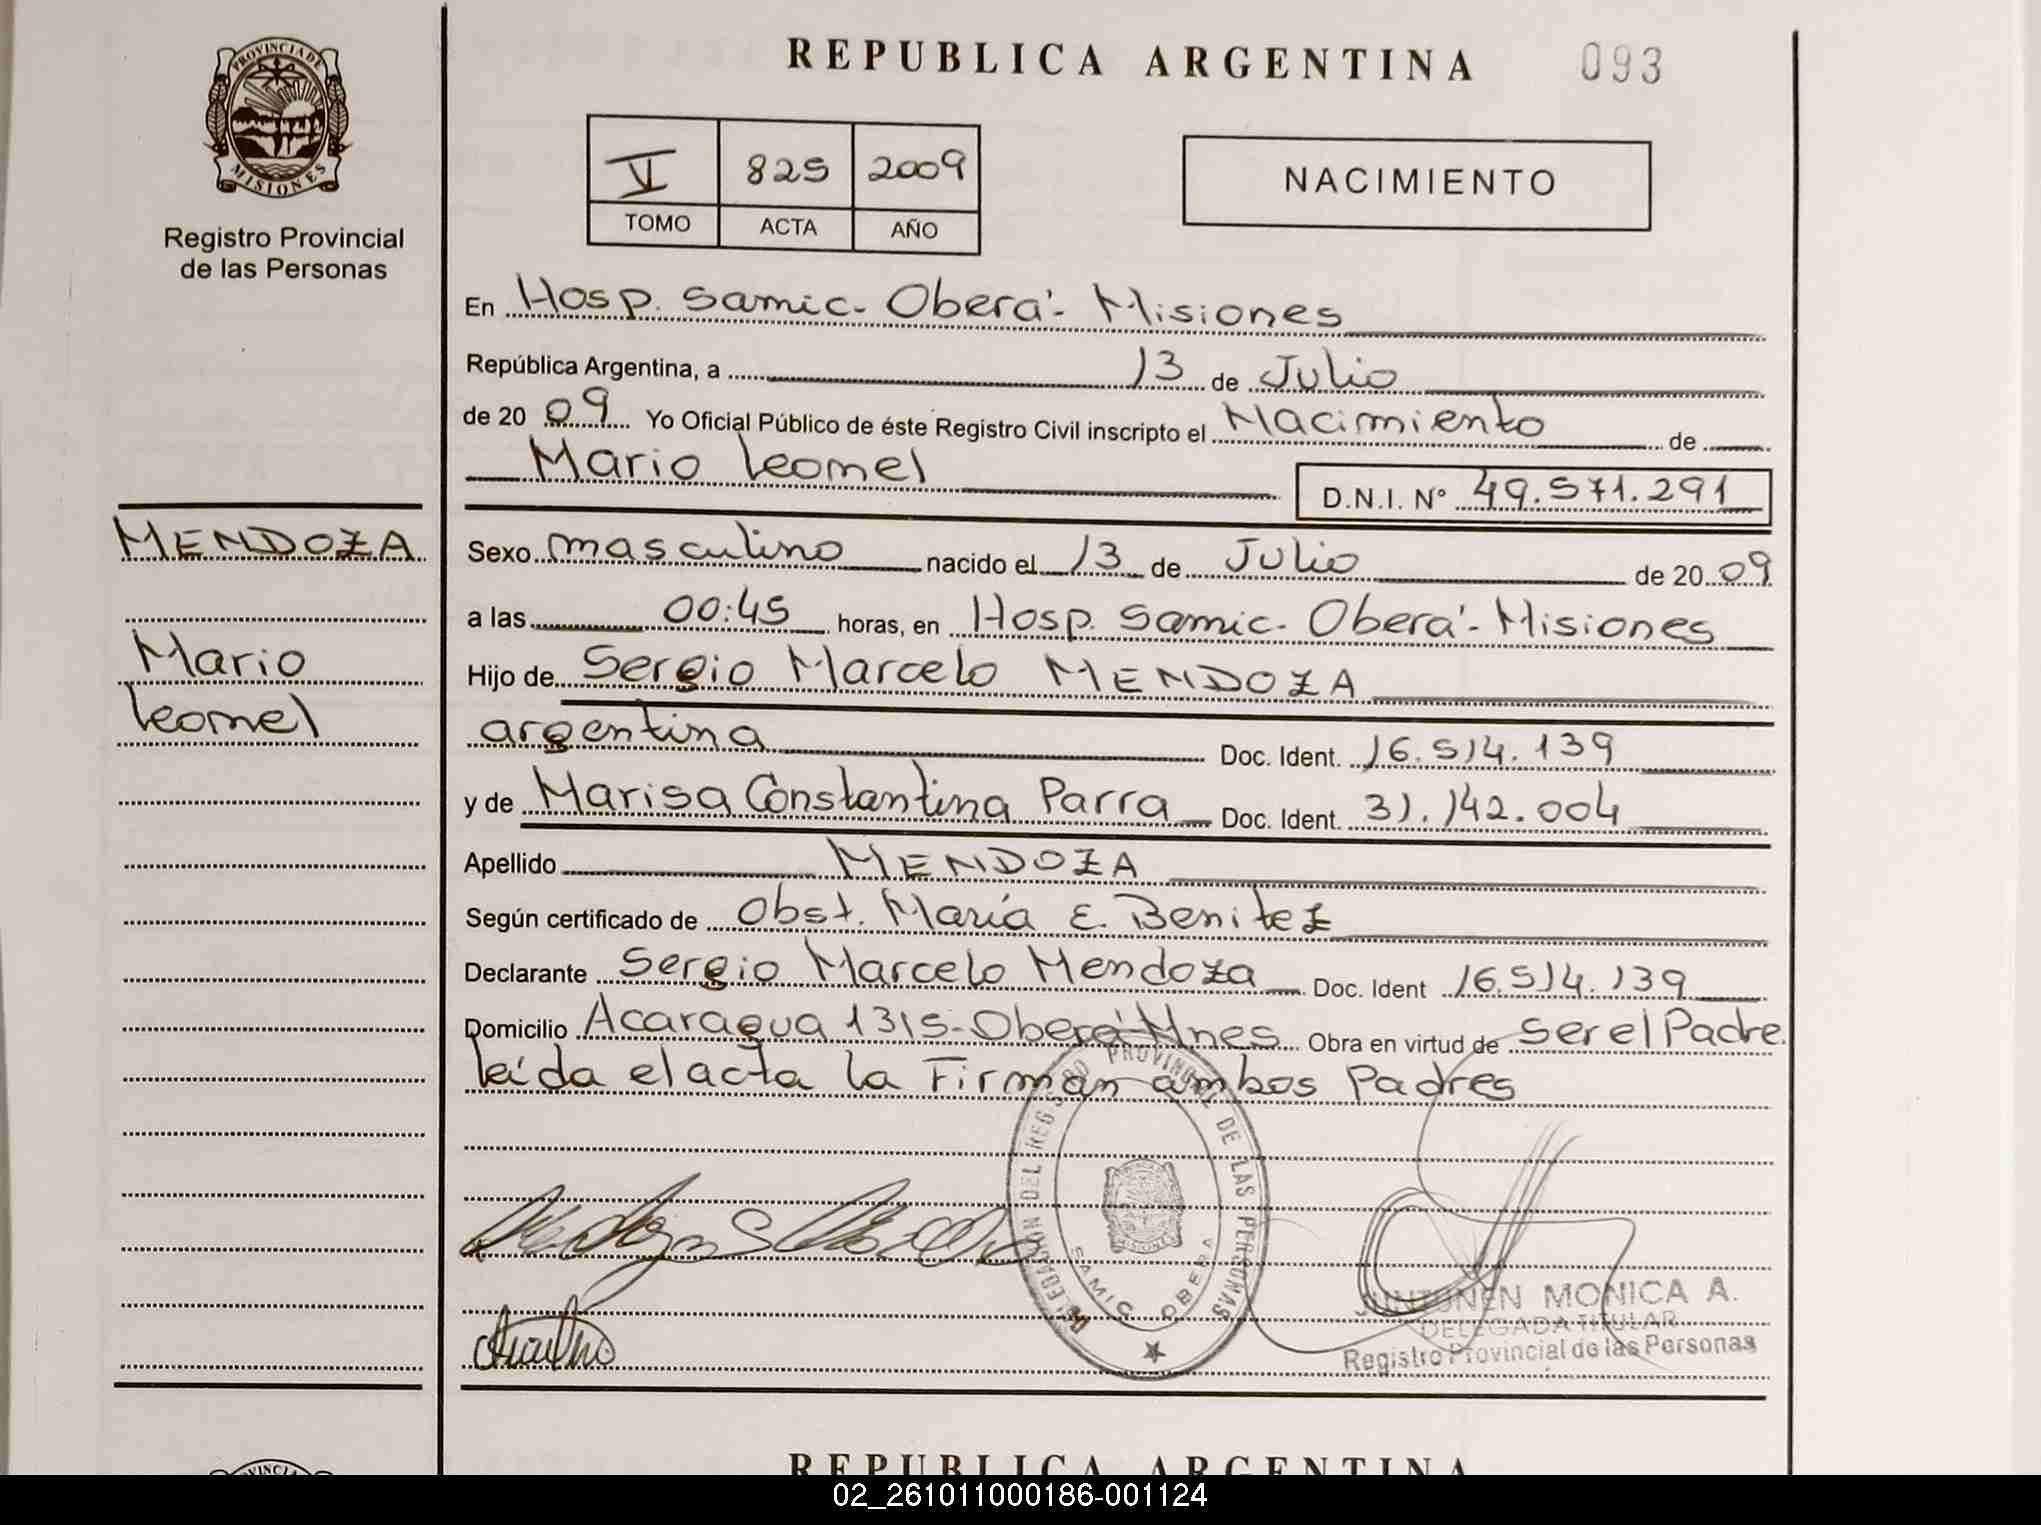 REPUBLICA ARGENTINA 093
PROVINCIA DE
MISIONES
Registro Provincial
de las Personas
V 825 2009
TOMO ACTA AÑO
NACIMIENTO
En Hosp. Samic - Oberá - Misiones
República Argentina, a 13 de Julio
de 20 09 Yo Oficial Público de éste Registro Civil inscripto el Nacimiento de
Mario Leonel D.N.I. N° 49.571.291
MENDOZA
Mario
Leonel
Sexo masculino nacido el 13 de Julio de 20 09
a las 00:45 horas, en Hosp. Samic - Oberá - Misiones
Hijo de Sergio Marcelo MENDOZA
argentina Doc. Ident. 16.514.139
y de Marisa Constantina Parra Doc. Ident. 31.142.004
Apellido MENDOZA
Según certificado de Obst. María E. Benitez
Declarante Sergio Marcelo Mendoza Doc. Ident 16.514.139
Domicilio Acaragua 1315 - Oberá Mnes Obra en virtud de Ser el Padre
leída el acta la Firman ambos Padres
DELEGACION DEL REGISTRO PROVINCIAL DE LAS PERSONAS
MISIONES
SAMIC OBERA
JUNTUNEN MONICA A.
DELEGADA TITULAR
Registro Provincial de las Personas
REPUBLICA ARGENTINA
02_261011000186-001124